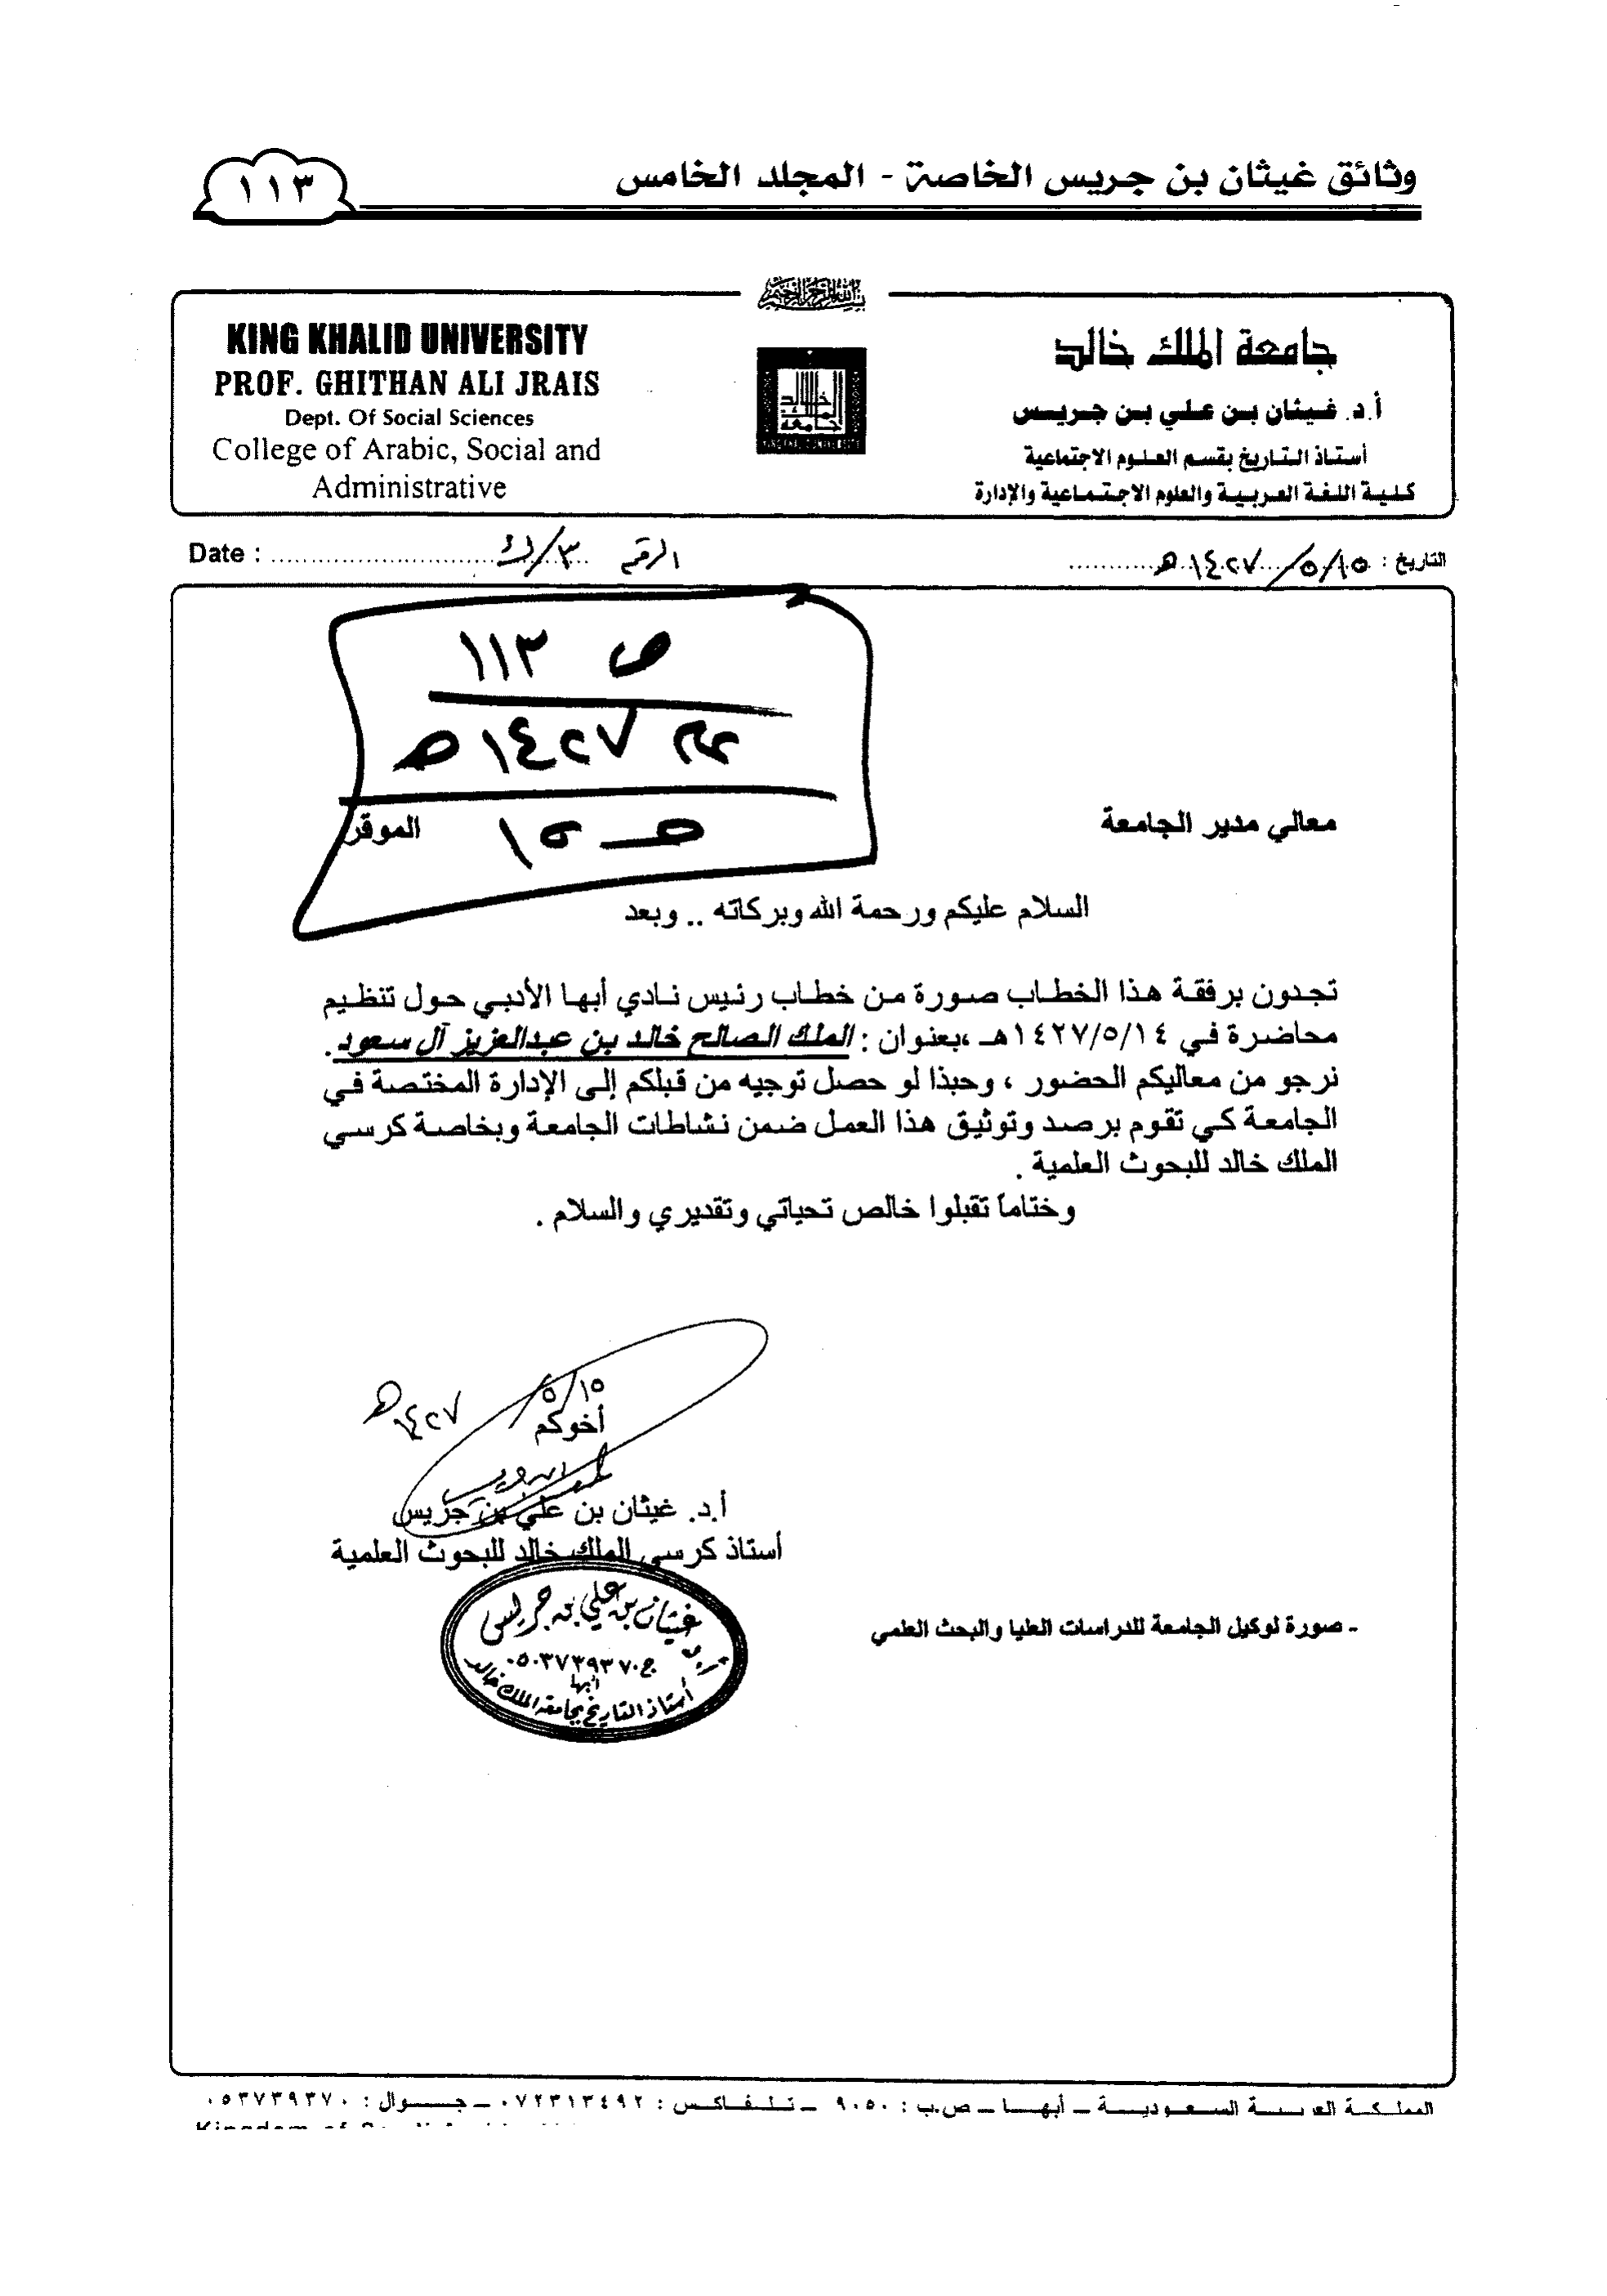 وثائق غيثان بن جريس الخاصة - المجلد الخامس
١١٣
جامعة الملك خالد
أ.د. غيثان بن علي بن جريس
أستاذ التاريخ بقسم العلوم الاجتماعية
كلية اللغة العربية والعلوم الاجتماعية والإدارة
بسم الله الرحمن الرحيم
KING KHALID UNIVERSITY
PROF. GHITHAN ALI JRAIS
Dept. Of Social Sciences
College of Arabic, Social and
Administrative
التاريخ : ١٥/٥/١٤٢٧هـ
الرقم ٣/ك
Date :
ص ١١٣
عام ١٤٢٧هـ
معالي مدير الجامعة الموقر
السلام عليكم ورحمة الله وبركاته .. وبعد
تجدون برفقة هذا الخطاب صورة من خطاب رئيس نادي أبها الأدبي حول تنظيم
محاضرة في ١٤٢٧/٥/١٤هـ ،بعنوان : الملك الصالح خالد بن عبدالعزيز آل سعود.
نرجو من معاليكم الحضور ، وحبذا لو حصل توجيه من قبلكم إلى الإدارة المختصة في
الجامعة كي تقوم برصد وتوثيق هذا العمل ضمن نشاطات الجامعة وبخاصة كرسي
الملك خالد للبحوث العلمية .
وختاماً تقبلوا خالص تحياتي وتقديري والسلام .
١٥/٥/١٤٢٧هـ
أخوكم
أ.د. غيثان بن علي بن جريس
أستاذ كرسي الملك خالد للبحوث العلمية
غيثان بن علي بن جريس
ج.٠٥٠٣٧٣٩٣٧٠
أبها
أستاذ التاريخ بجامعة الملك خالد
- صورة لوكيل الجامعة للدراسات العليا والبحث العلمي
المملكة العربية السعودية – أبها – ص.ب : ٩٠٥٠ – تلفاكس : ٠٧٢٣١٣٤٩٢ – جوال : ٠٥٣٧٣٩٣٧٠
Kingdom of